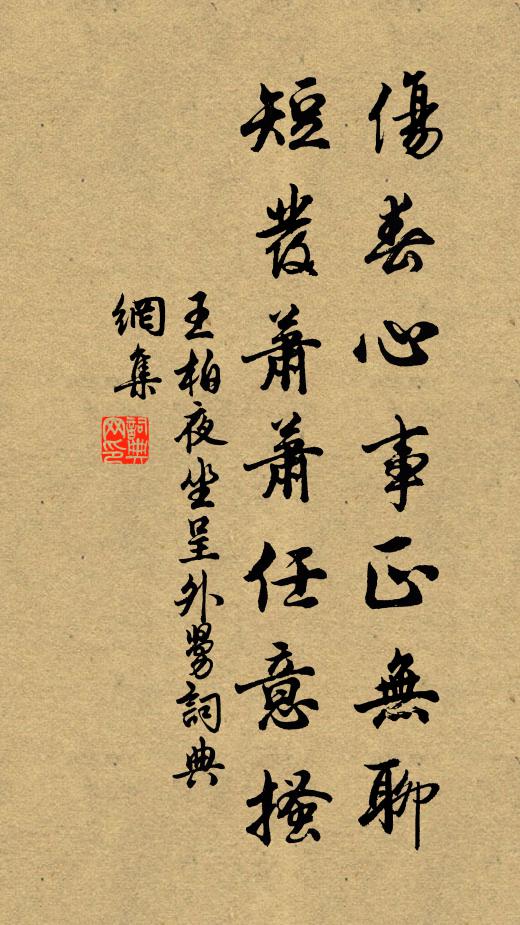 傷春心事正無聊
短發蕭蕭任意搔
王柏夜坐呈外舅詞典
網集
詞典
网印